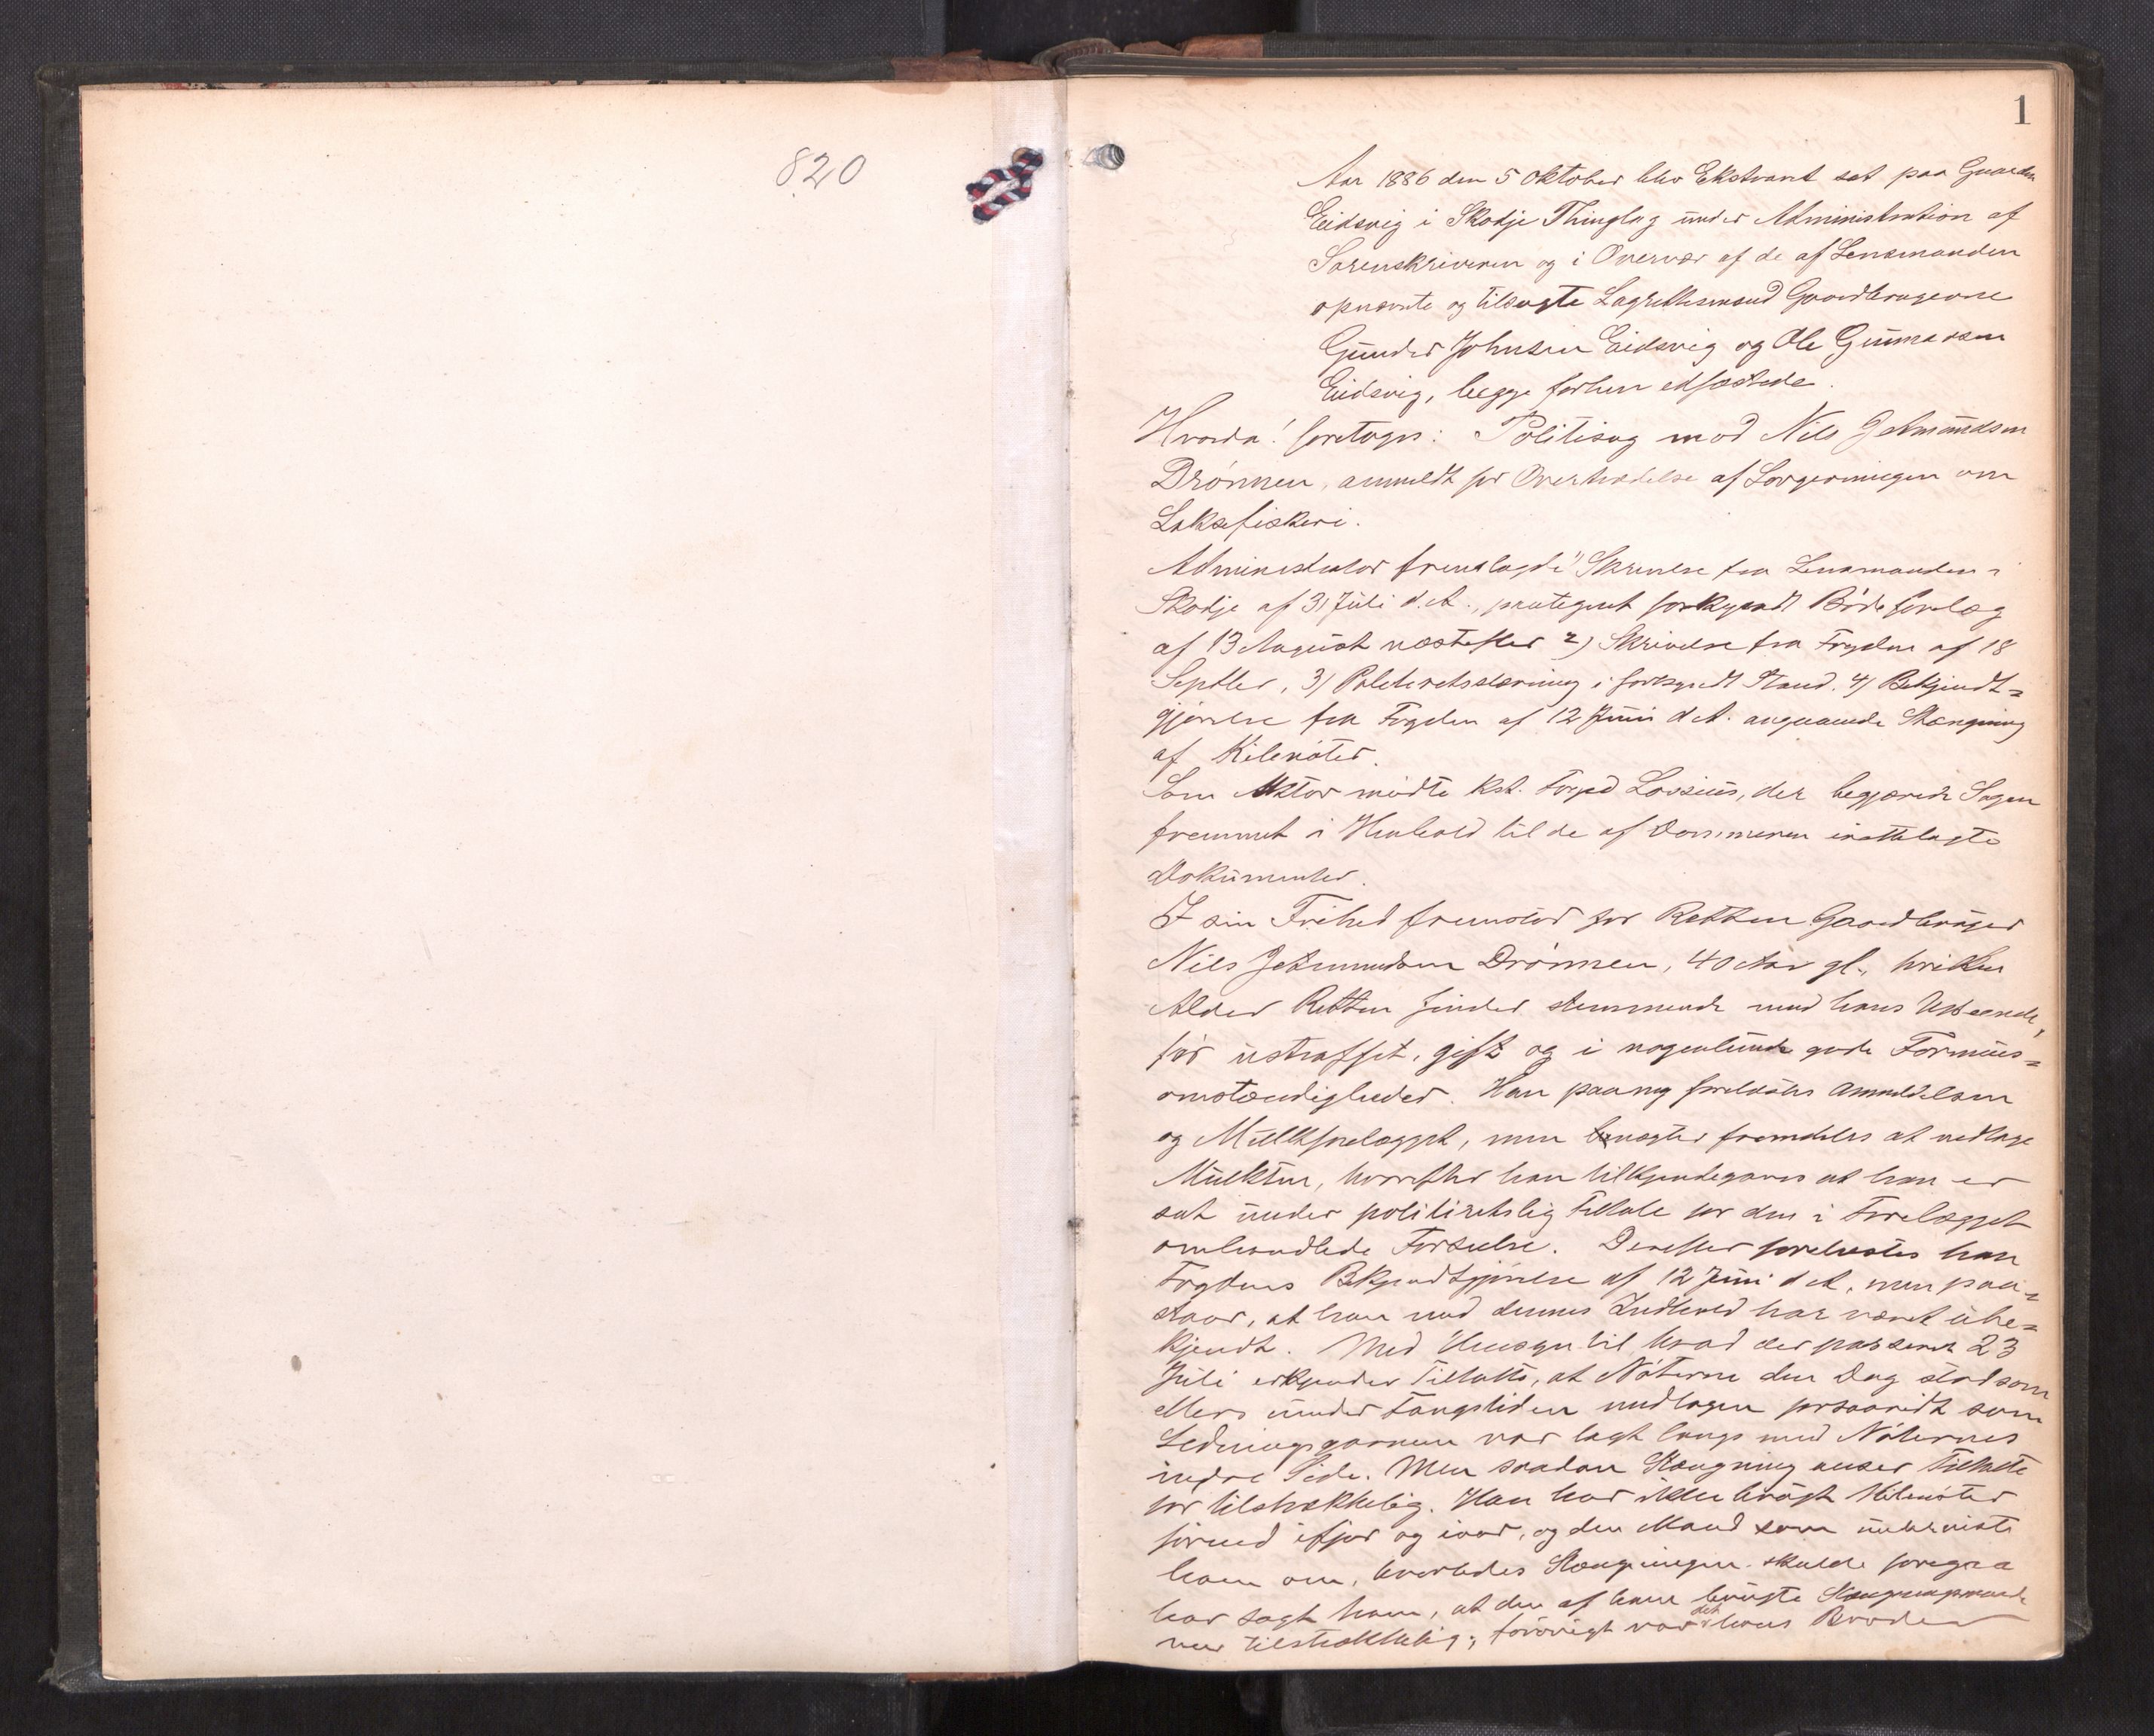 820
1
Aar 1886 den 5 Oktober blev Ekstraret sat paa Gaarden
Eidsvig i Skodje Thinglag under Administration af
Sorenskriveren og i Overvær af de af Lensmanden
opnævnte og tilsagte Lagrettesmænd Gaardbrugerne
Gunder Johnsen Eidsvig og Ole Gunnarsen
Eidsvig, begge forhen edfæstede.
Hvorda! foretoges: Politisag mod Nils Jetmundsen
Drønnen, anmeldt for Overtrædelse af Lovgivningen om
Laksefiskeri.
Administrator fremlagde 1) Skrivelse fra Lensmanden i
Skodje af 31 Juli d. A., paategnet forkyndt Bødeforelæg
af 13 August næstefter 2) Skrivelse fra Fogden af 18
Septbr, 3) Politiretsstævning i forkyndt Stand. 4) Bekjendt=
gjørelse fra Fogden af 12 Juni d A. angaaende Stængning
af Kilenøter.
Som Aktor mødte Kst. Foged Lossius, der begjærede Sagen
fremmet i Henhold til de af Dommeren irettelagte
Dokumenter.
I sin Frihed fremstod for Retten Gaardbruger
Nils Jetmundsen Drønnen, 40 Aar gl., hvilken
Alder Retten finder stemmende med hans Udseende,
før ustraffet, gift og i nogenlunde gode Formues=
omstændigheder. Han paany forelæstes Anmeldelsen
og Mulktforelægget, men nægter fremdeles at vedtage
Mulkten, hvorefter han tilkjendegaves at han er
sat under politiretslig Tiltale for den i Forelægget
omhandlede Forseelse. Derefter forelæstes han
Fogdens Bekjendtgjørelse af 12 Juni d A, men paa=
staar, at han med dennes Indhold har været ube=
kjendt. Med Hensyn til hvad der passerede 23
Juli erkjender Tiltalte, at Nøterne den Dag stod som
ellers under Fangstiden undtagen forsaavidt som
Ledningsgarnene var lagt langs med Nøternes
indre Side. Men saadan Stængning anser Tiltalte
for tilstrækkelig. Han har ikke brugt Kilenøter
førend ifjor og iaar, og den Mand som underviste
ham om, hvorledes Stængningen skulde foregaa
har sagt ham, at den af ham brugte Stængningsmaade
var tilstrækkelig; forøvrigt var det hans Broder